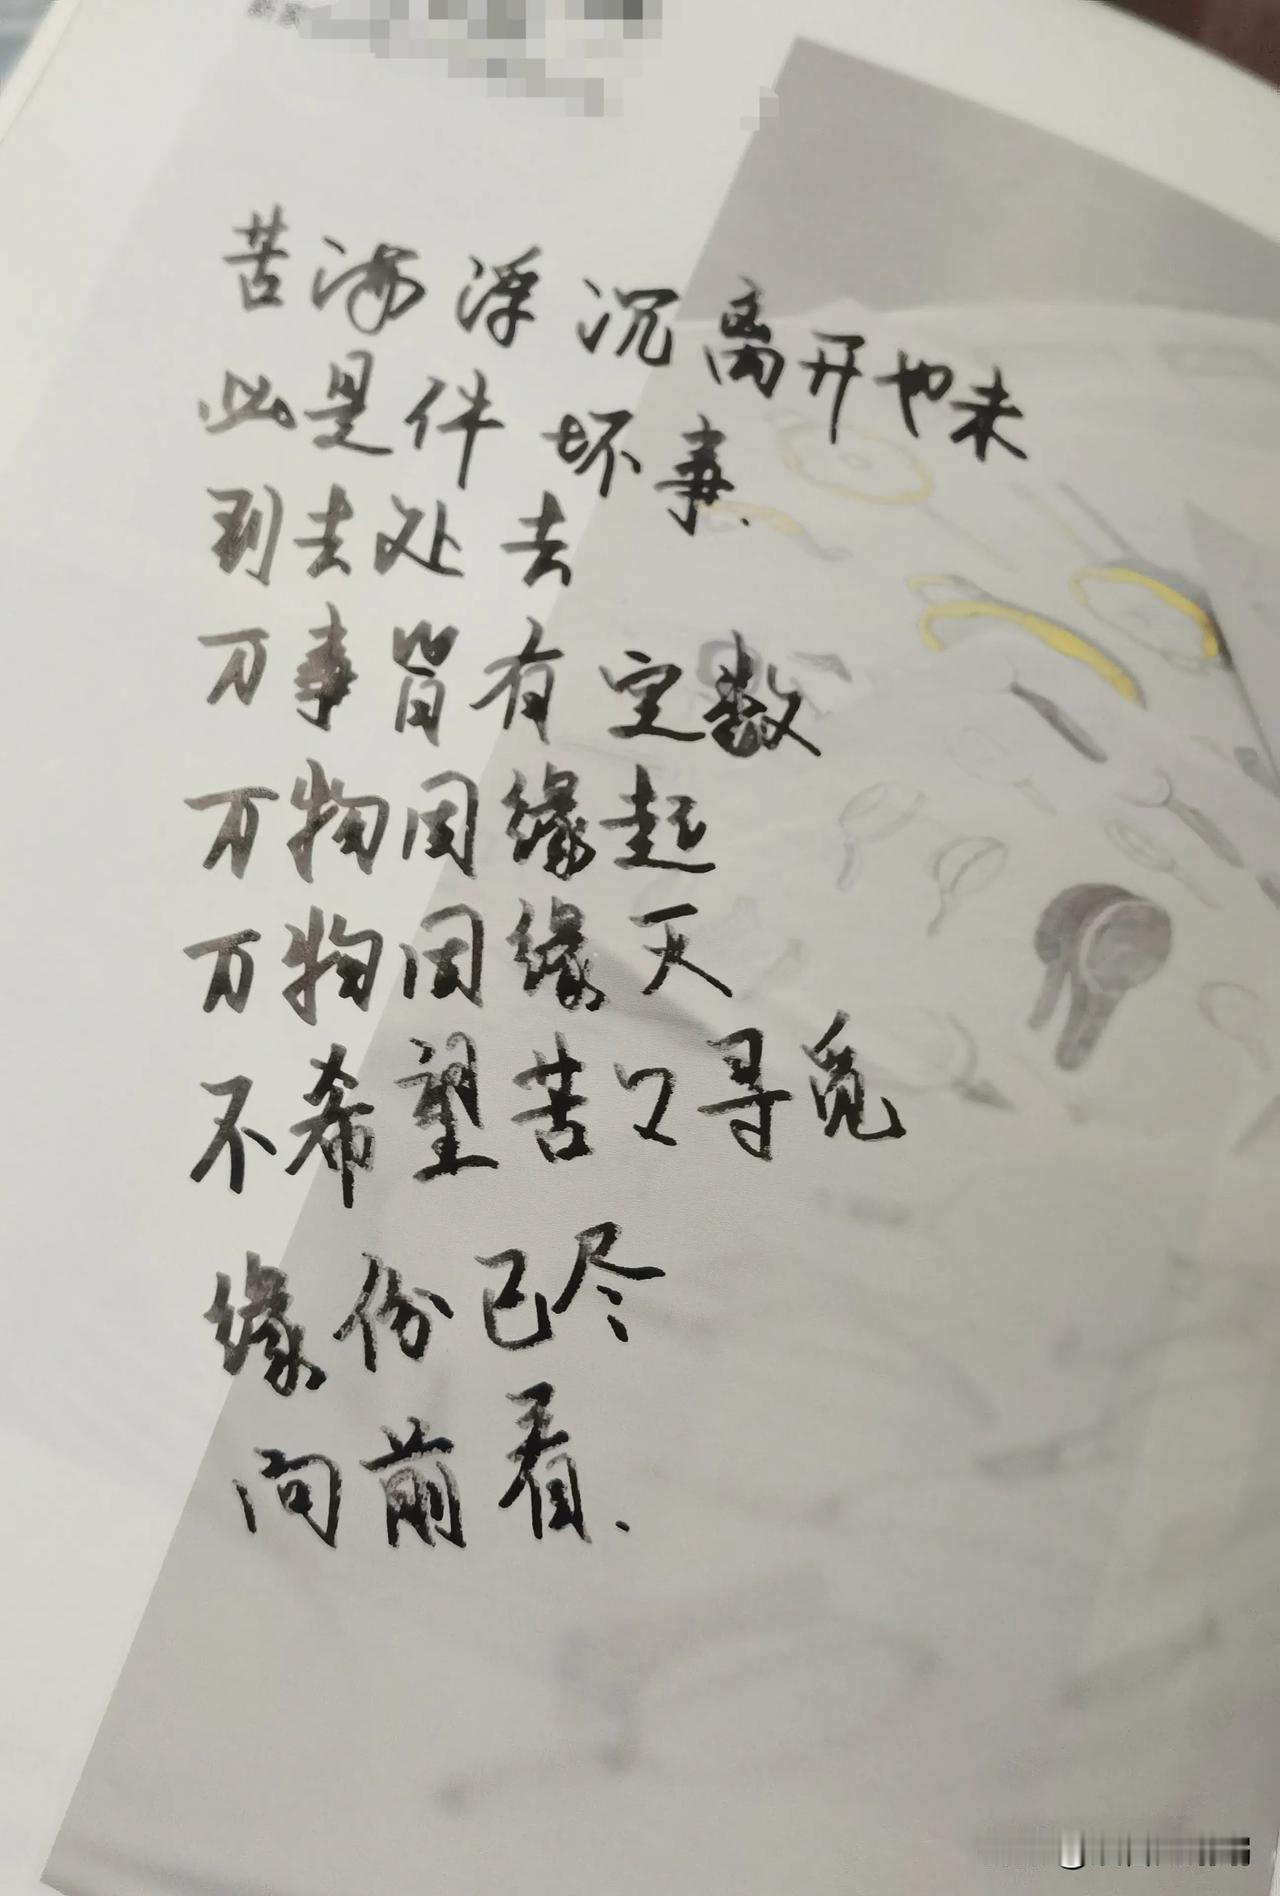 苦海浮沉离开也未
必是件坏事.
到去处去
万事皆有定数
万物因缘起
万物因缘灭
不希望苦口寻觅
缘份已尽
向前看.